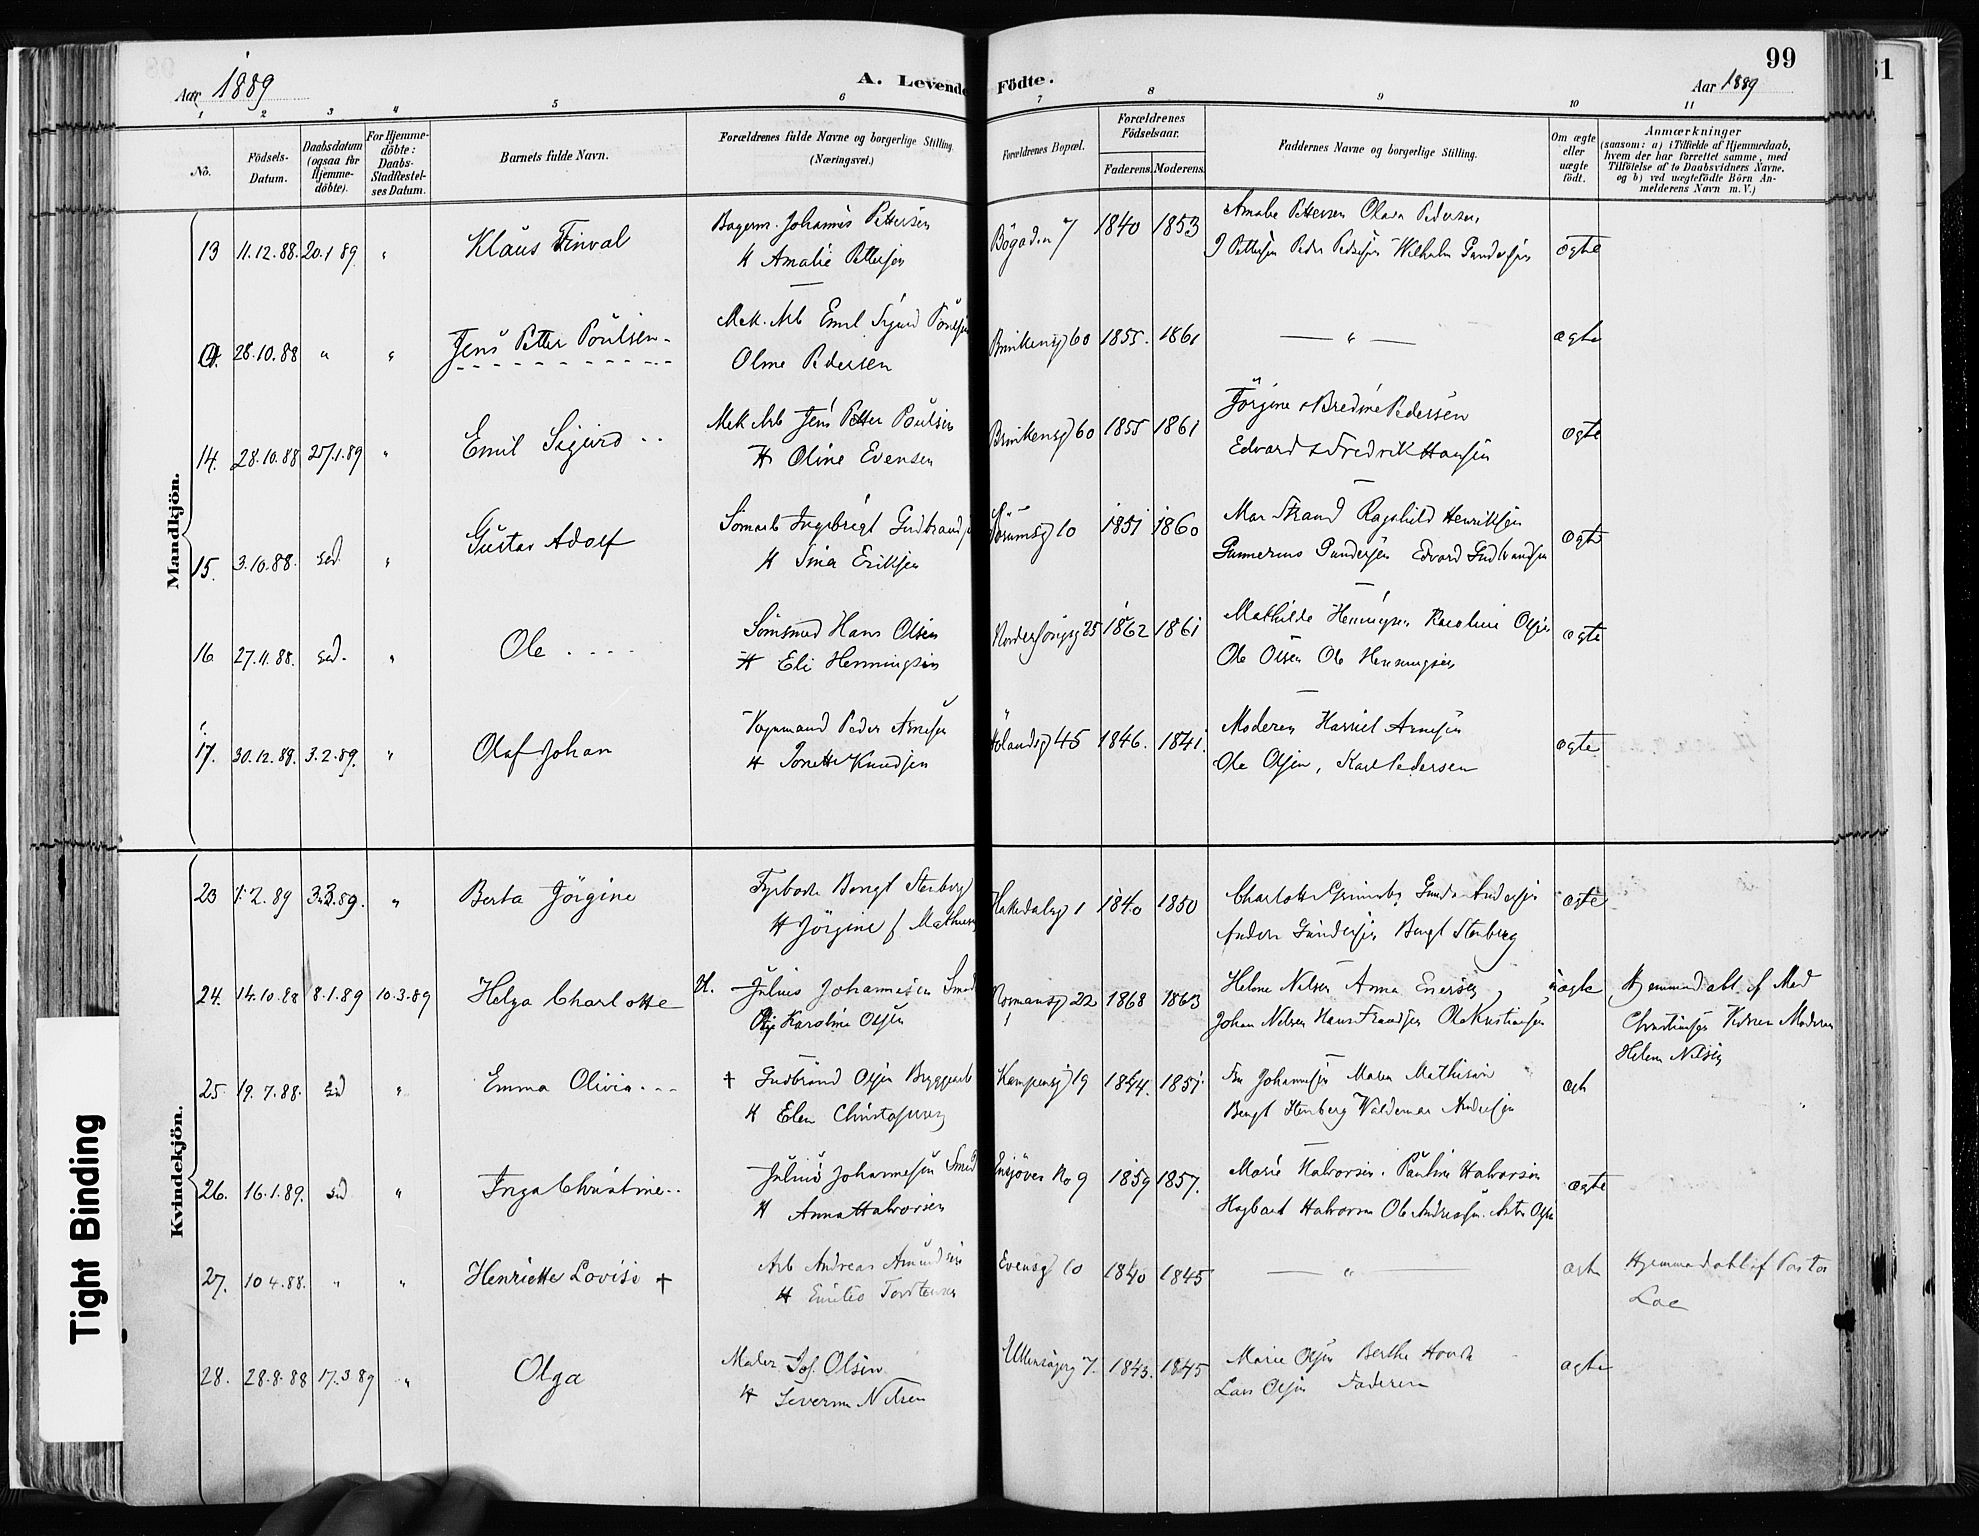 Aar 1889
A. Levende Fødte.
99
Aar 1889
61
1 2 3 4 5 6 7 8 9 10 11
No.
Födsels-
Datum.
Daabsdatum
(ogsaa for
Hjemme-
döbte).
For Hjemme-
döbte:
Daabs-
Stadfæstel-
ses Datum.
Barnets fulde Navn.
Forældrenes fulde Navne og borgerlige Stilling.
(Næringsvei.)
Forældrenes Bopæl.
Forældrenes
Födselsaar.
Faderens. Moderens.
Faddernes Navne og borgerlige Stilling.
Om ægte
eller
uægte
födt.
Anmærkninger
(saasom: a) i Tilfælde af Hjemmedaab,
hvem der har forrettet samme, med
Tilföielse af to Daabsvidners Navne.
og b) ved uægtefödte Börn An-
melderens Navn m. V.)
Mandkjön.
13 11.12.88. 20.1 89. " Klaus Finval
Bagerm. Johannes Pettersen
H Amalie Pettersen
Bögaden 7 1840 1853
Amalie Pettersen Olava Pedersen
J Pettersen Peder Pedersen Wilhelm Gundersen
ægte
28.10.88 " " Jens Petter Poulsen
Mek. Arb Emil Sigurd
Oline Pedersen
Brinkensg 60 1855. 1861 — " — ægte
14. 28.10.88 27.1.89 " Emil Sigurd
Mek Arb Jens Petter Poulsen
H Oline Evensen
Brinkensg 60 1855 1861
Jörgine & Bredine Pedersen
Edvard & Fredrik Hansen
ægte
15. 3.10.88. sed " Gustav Adolf
Ingebrigt Gudbrands
H Sina Eriksen
Sörumsg 10 1851 1860
Mar Strand Ragnhild Henriksen
Gunnerius Gundersen Edvard Gudbrandsen
ægte
16 27.11.88. sed. " Ole
Sömsmed Hans Olsen
H Eli Henningsen
25 1862 1861
Mathilde Henningsen Karoline Olsen
Ole Olsen Ole Henningsen
ægte
17. 30.12.88. 3.2.89. " Olaf Johan
Vognmand Peder Arnesen
H Jonette Knudsen
Hölandsg 45 1846. 1841.
Moderen Harriet Arnesen
Ole Olsen, Karl Pedersen
ægte
Kvindekjön.
23 1.2.89 3.3.89. " Berta Jörgine
Fyrböder Bengt Stenberg
H Jörgine f Mathiesen
Hakedalsg 1 1840 1850
Charlotte Gunda Andersen
Anders Gundersen Bengt Stenberg
ægte
24. 14.10.88 8.1.89 10.3.89 Helga Charlotte
U. Julius Johannesen Smed
Pige Karoline Olsen
Normansg 22 1868 1863
Helene Nilsen Anna Enersen
Johan Nilsen Hans Frandsen Ole Kristiansen
uægte
Hjemmedöbt af Mad
Christiansen Vidner Moderen
Helene Nilsen
25. 19.7.88. sed " Emma Olivia
† Gudbrand Olsen Bryggearb
H Elen Christophersen
Kampensg 19 1844. 1851.
Fru Johannesen Maren Mathisen
Bengt Stenberg Valdemar Andersen
ægte
26. 16.1.89. sed " Inga Christine
Julius Johannesen Smed
H Anna Halvorsen
Ensjöveien No 9 1859 1857.
Marie Halvorsen. Pauline Halvorsen
Hagbart Halvorsen Ole Andreassen. Olsen
ægte
27. 10 4.88. " " Henriette Lovise †
Arb Andreas Amundsen
H Emilie Torstensen
Evensg 10 1840 1845 — " — ægte
Hjemmedöbt af Pastor
28. 28.8.88 17.3 89 " Olga
Maler Jos. Olsen
H Severine Nilsen
Ullensagerg 7. 1843. 1845
Marie Olsen Berthe
Lars Olsen Faderen
ægte
Tight Binding